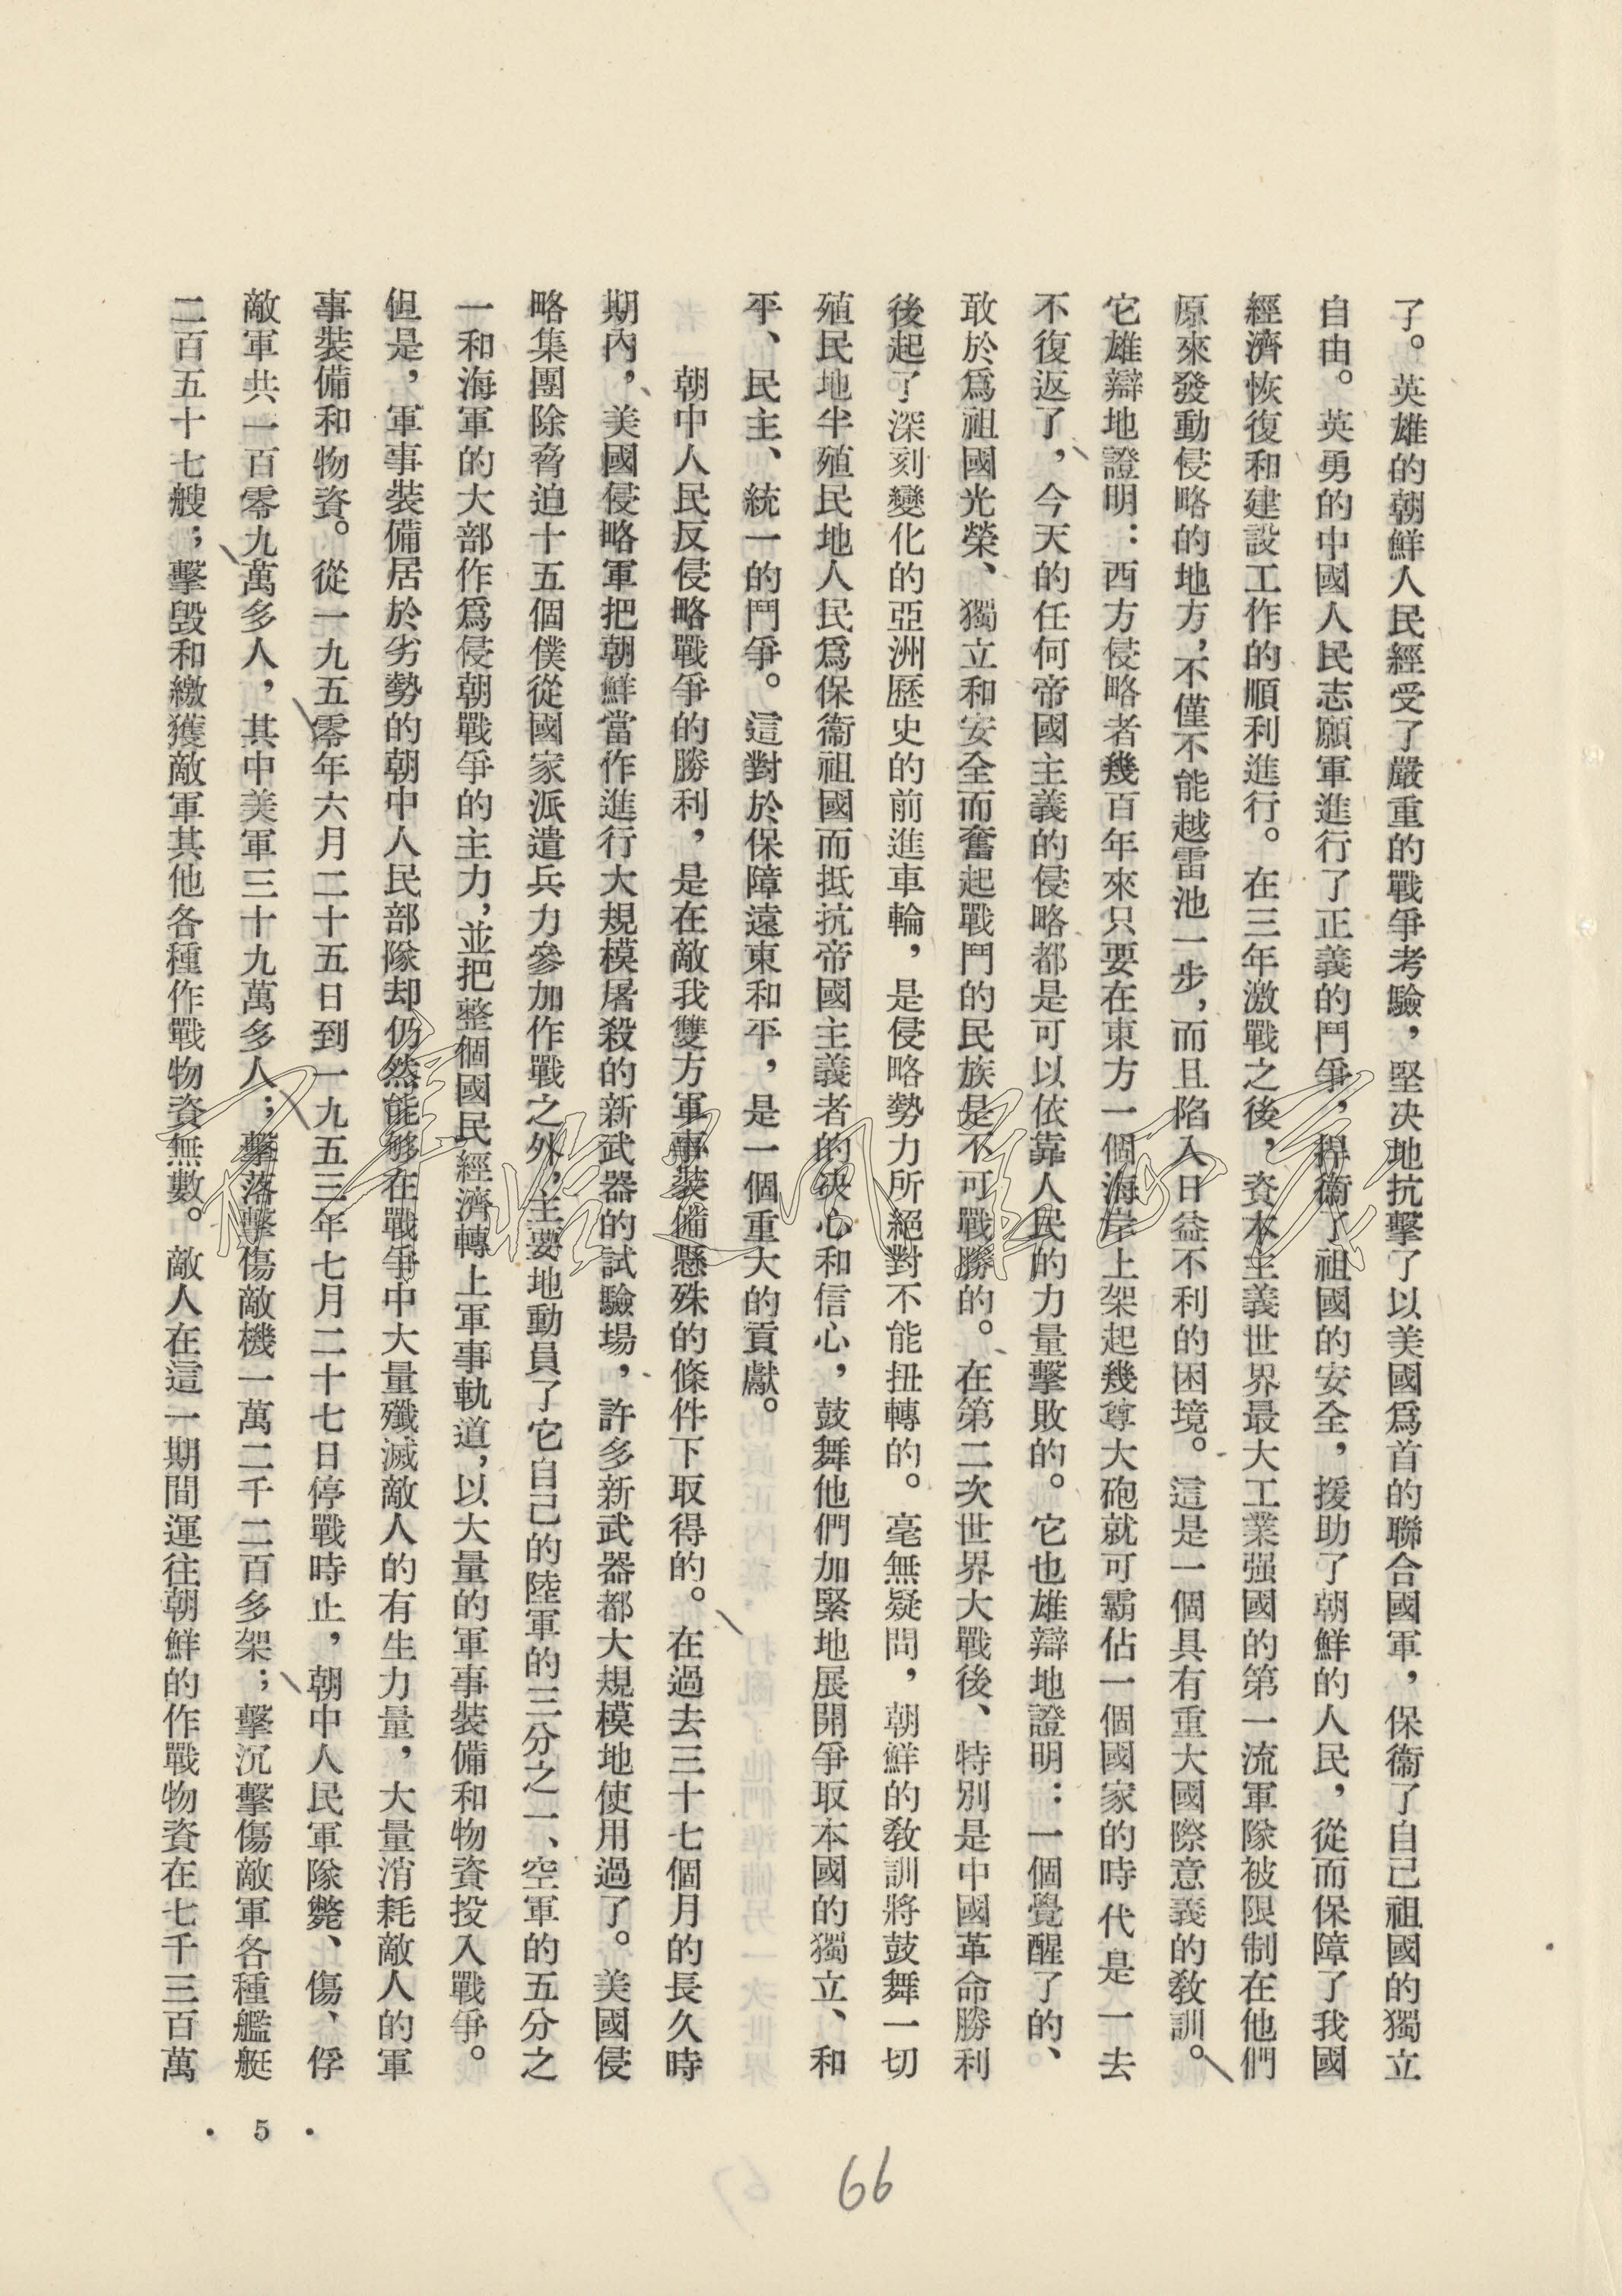 了。英雄的朝鮮人民經受了嚴重的戰爭考驗，堅决地抗擊了以美國爲首的聯合國軍，保衞了自己祖國的獨立
自由。英勇的中國人民志願軍進行了正義的鬥爭，捍衞了祖國的安全，援助了朝鮮的人民，從而保障了我國
經濟恢復和建設工作的順利進行。在三年激戰之後，資本主義世界最大工業强國的第一流軍隊被限制在他們
原來發動侵略的地方，不僅不能越雷池一步，而且陷入日益不利的困境。這是一個具有重大國際意義的敎訓。
它雄辯地證明：西方侵略者幾百年來只要在東方一個海岸上架起幾尊大砲就可霸佔一個國家的時代是一去
不復返了，今天的任何帝國主義的侵略都是可以依靠人民的力量擊敗的。它也雄辯地證明：一個覺醒了的、
敢於爲祖國光榮、獨立和安全而奮起戰鬥的民族是不可戰勝的。在第二次世界大戰後、特別是中國革命勝利
後起了深刻變化的亞洲歷史的前進車輪，是侵略勢力所絕對不能扭轉的。毫無疑問，朝鮮的敎訓將鼓舞一切
殖民地半殖民地人民爲保衞祖國而抵抗帝國主義者的决心和信心，鼓舞他們加緊地展開爭取本國的獨立、和
平、民主、統一的鬥爭。這對於保障遠東和平，是一個重大的貢獻。
朝中人民反侵略戰爭的勝利，是在敵我雙方軍事裝備懸殊的條件下取得的。在過去三十七個月的長久時
期內，美國侵略軍把朝鮮當作進行大規模屠殺的新武器的試驗場，許多新武器都大規模地使用過了。美國侵
略集團除脅迫十五個僕從國家派遣兵力參加作戰之外，主要地動員了它自己的陸軍的三分之一、空軍的五分之
一和海軍的大部作爲侵朝戰爭的主力，並把整個國民經濟轉上軍事軌道，以大量的軍事裝備和物資投入戰爭。
但是，軍事裝備居於劣勢的朝中人民部隊却仍然能够在戰爭中大量殲滅敵人的有生力量，大量消耗敵人的軍
事裝備和物資。從一九五零年六月二十五日到一九五三年七月二十七日停戰時止，朝中人民軍隊斃、傷、俘
敵軍共一百零九萬多人，其中美軍三十九萬多人；擊落擊傷敵機一萬二千二百多架；擊沉擊傷敵軍各種艦艇
二百五十七艘；擊毁和繳獲敵軍其他各種作戰物資無數。敵人在這一期間運往朝鮮的作戰物資在七千三百萬
· 5 ·
66